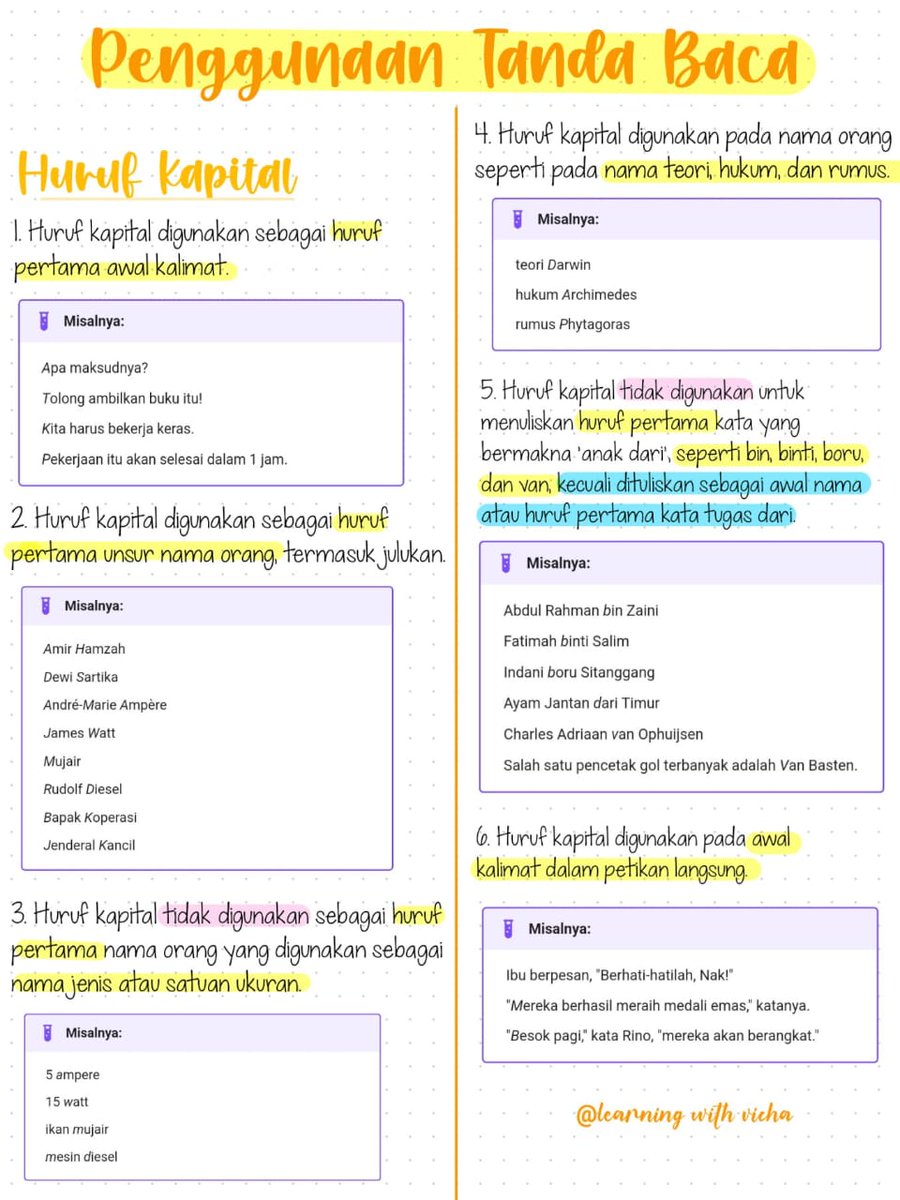 Penggunaan Tanda Baca
Huruf Kapital
1. Huruf kapital digunakan sebagai huruf
pertama awal kalimat.
Misalnya:
Apa maksudnya?
Tolong ambilkan buku itu!
Kita harus bekerja keras.
Pekerjaan itu akan selesai dalam 1 jam.
2. Huruf kapital digunakan sebagai huruf
pertama unsur nama orang, termasuk julukan.
Misalnya:
Amir Hamzah
Dewi Sartika
André-Marie Ampère
James Watt
Mujair
Rudolf Diesel
Bapak Koperasi
Jenderal Kancil
3. Huruf kapital tidak digunakan sebagai huruf
pertama nama orang yang digunakan sebagai
nama jenis atau satuan ukuran.
Misalnya:
5 ampere
15 watt
ikan mujair
mesin diesel
4. Huruf kapital digunakan pada nama orang
seperti pada nama teori, hukum, dan rumus.
Misalnya:
teori Darwin
hukum Archimedes
rumus Phytagoras
5. Huruf kapital tidak digunakan untuk
menuliskan huruf pertama kata yang
bermakna 'anak dari', seperti bin, binti, boru,
dan van, kecuali dituliskan sebagai awal nama
atau huruf pertama kata tugas dari.
Misalnya:
Abdul Rahman bin Zaini
Fatimah binti Salim
Indani boru Sitanggang
Ayam Jantan dari Timur
Charles Adriaan van Ophuijsen
Salah satu pencetak gol terbanyak adalah Van Basten.
6. Huruf kapital digunakan pada awal
kalimat dalam petikan langsung.
Misalnya:
Ibu berpesan, "Berhati-hatilah, Nak!"
"Mereka berhasil meraih medali emas," katanya.
"Besok pagi," kata Rino, "mereka akan berangkat."
@learning with vicha